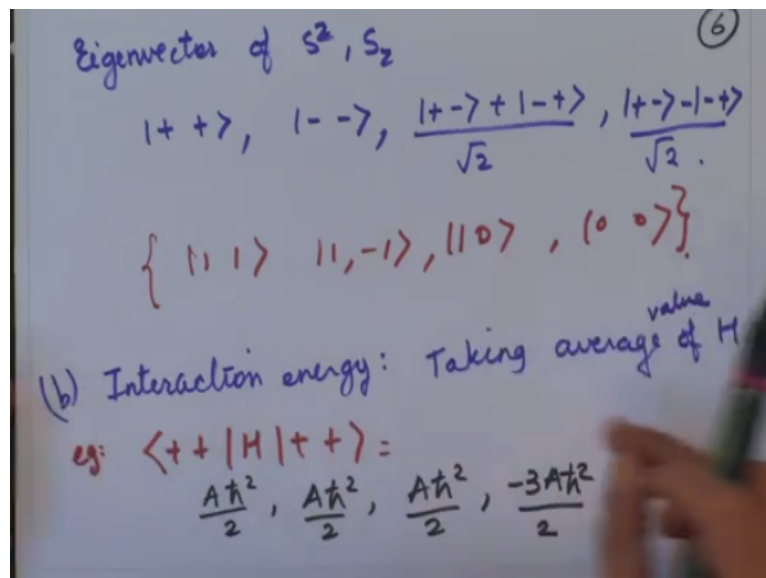 6
Eigenvector of S², S_z
|+ +>, |- ->, (|+ -> + |- +>)/√2, (|+ -> - |- +>)/√2.
{ |1 1> |1, -1>, |1 0>, |0 0> }.
(b) Interaction energy: Taking average value of H
eg: <+ + |H| + +> =
Aħ²/2, Aħ²/2, Aħ²/2, -3Aħ²/2